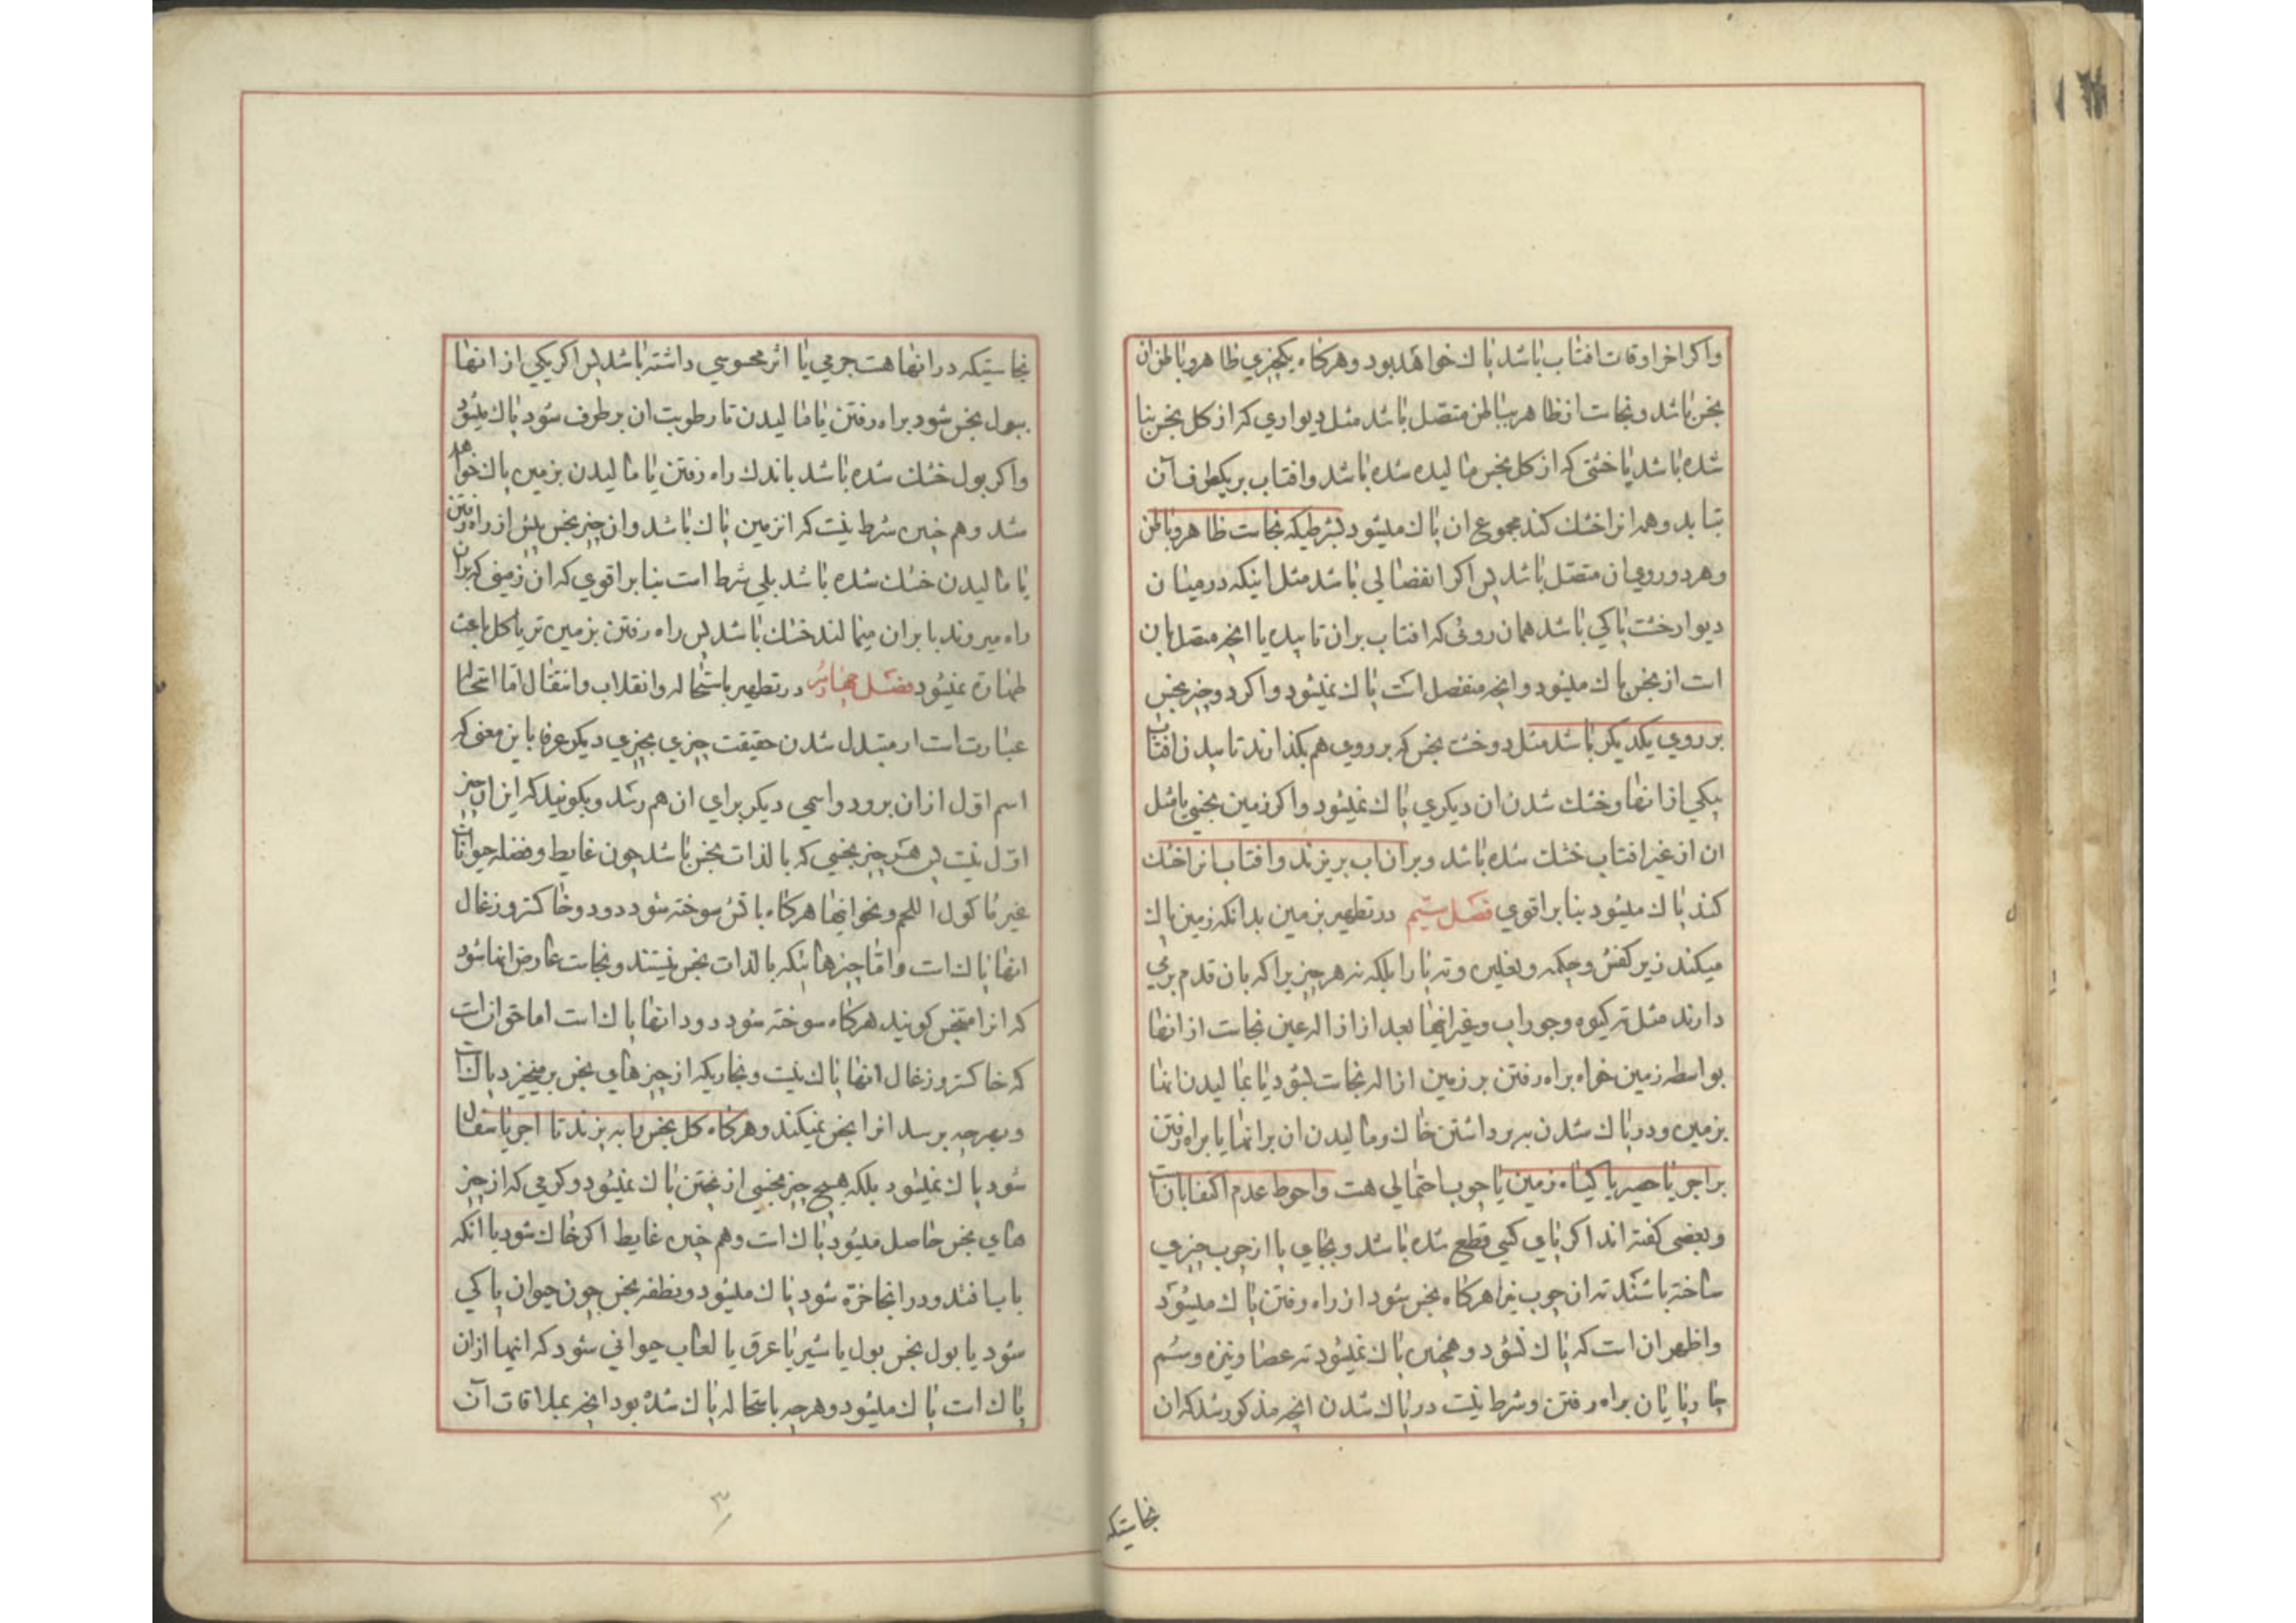 واکر اخر اوقات افتاب باشد پاك خواهد بود و هرکاه یکچیزی ظاهر و باطن ان
نجس باشد و نجاست از ظاهر بباطن متصل باشد مثل دیواری که از کل نجس بنا
شده باشد یا خشتی که از کل نجس مالیده شده باشد و افتاب بر یکطرف آن
بتابد و همه انرا خشك کند مجموع ان پاك میشود بشرطیکه نجاست ظاهر و باطن
و هر دو روی ان متصل باشد پس اکر انفصالی باشد مثل اینکه در میان
دیوار خشت پاکی باشد همان روئی که افتاب بران تابیده یا انچه متصل بان
است از نجس پاك میشود و انچه منفصل است پاك نمیشود و اکر دو چیز نجس
بر روی یکدیکر باشد مثل دو خشت نجس که بر روی هم بکذارند تابیدن افتاب
بیکی از انها و خشك شدن ان دیکری پاك نمیشود و اکر زمین نجسی یا مثل
ان از غیر افتاب خشك شده باشد و بران اب بریزند و افتاب انرا خشك
کند پاك میشود بنا بر اقوی فصل سیم در تطهیر بزمین بدانکه زمین پاك
میکند زیر کفش و چکمه و نعلین و ته پا را بلکه ته هر چیزیرا که بان قدم بر می
دارند مثل ته کیوه و جوراب و غیر اینها بعد از ازاله عین نجاست از انها
بواسطه زمین خواه براه رفتن بر زمین ازاله نجاست بشود یا بمالیدن انها
بزمین و در پاك شدن به برداشتن خاك و مالیدن ان بر انها یا براه رفتن
بر اجر یا حصیر یا کیاه زمین یا چوب احتمالی هست و احوط عدم اکتفا بان است
و بعضی کفته اند اکر پای کسی قطع شده باشد و بجای پا از چوب چیزی
ساخته باشند ته ان چوب نیز هرکاه نجس شود از راه رفتن پاك میشود
و اظهر ان است که پاك نشود و همچنین پاك نمیشود ته عصا و نیزه و سم
چارپایان براه رفتن و شرط نیست در پاك شدن انچه مذکور شد که ان
نجاستیکه
نجاستیکه در انها هست جرمی یا اثر محسوسی داشته باشد پس اکر یکی از انها
ببول نجس شود براه رفتن یا مالیدن تا رطوبت ان برطرف شود پاك میشود
و اکر بول خشك شده باشد باندك راه رفتن یا مالیدن بزمین پاك خواهد
شد و هم چنین شرط نیست که انزمین پاك باشد و ان چیز نجس پیش از راه رفتن
یا مالیدن خشك شده باشد بلی شرط است بنا بر اقوی که ان زمینی که بران
راه میروند یا بر ان میمالند خشك باشد پس راه رفتن بزمین تر یا کل باعث
طهارة نمیشود فصل چهارم در تطهیر باستحاله و انقلاب و انتقال اما استحاله
عبارت است از متبدل شدن حقیقت چیزی بچیزی دیکر عرفا باین معنی که
اسم اول از ان برود و اسمی دیکر برای ان هم رسد و بکویند که این ان چیز
اول نیست پس هر چیز نجسی که بالذات نجس باشد چون غایط و فضله حیوانات
غیر ماکول اللحم و نحو اینها هرکاه باتش سوخته شود دود و خاکستر و زغال
انها پاك است و اما چیزهائیکه بالذات نجس نیستند و نجاست عارض انها شود
که انرا متنجس کویند هرکاه سوخته شود دود انها پاك است اما حق ان است
که خاکستر و زغال انها پاك نیست و بخاریکه از چیزهای نجس برمیخیزد پاك است
و بهرچه برسد انرا نجس نمیکند و هرکاه کل نجس را به پزند تا اجر یا سفال
شود پاك نمیشود بلکه هیچ چیز نجسی از پختن پاك نمیشود و کرمی که از چیز
های نجس حاصل میشود پاك است و هم چنین غایط اکر خاك شود یا انکه
یا بیافتد و در انجا خره شود پاك میشود و نطفه نجس چون حیوان پاکی
شود یا بول نجس بول یا شیر یا عرق یا لعاب حیوانی شود که اینها از ان
پاك است پاك میشود و هرچه باستحاله پاك شده بود انچه بملاقات آن
۳